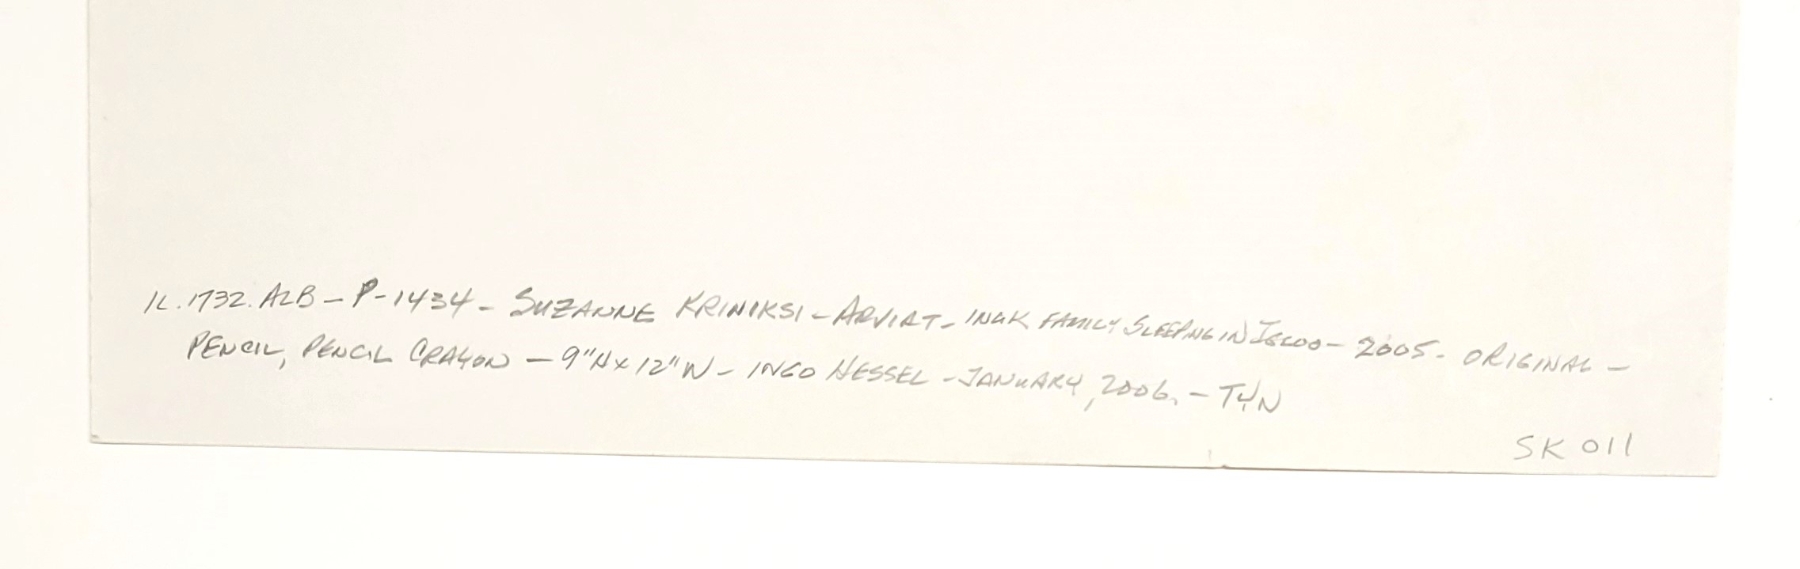 IL.1732.ALB – P-1434 – SUZANNE KRINIKSI – ARVIAT – INUK FAMILY SLEEPING IN IGLOO – 2005 – ORIGINAL –
PENCIL, PENCIL CRAYON – 9"H x 12"W – INGO HESSEL – JANUARY, 2006. – TYN
SK 011